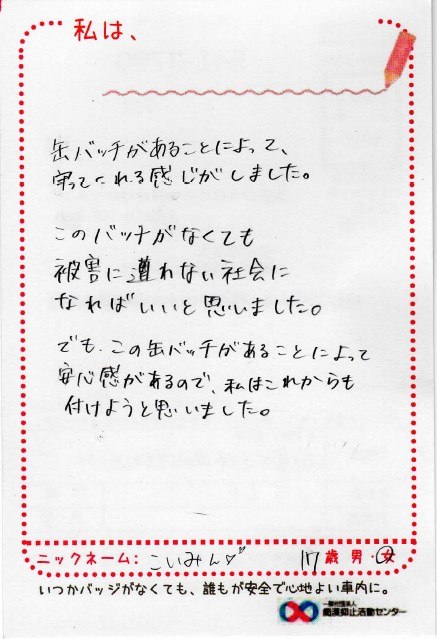 私は、
缶バッチがあることによって、
守ってくれる感じがしました。
このバッチがなくても
被害に遭わない社会に
なればいいと思いました。
でも、この缶バッチがあることによって
安心感があるので、私はこれからも
付けようと思いました。
ニックネーム: こいみん♡ 17歳 男・女
いつかバッジがなくても、誰もが安全で心地よい車内に。
一般社団法人
痴漢抑止活動センター